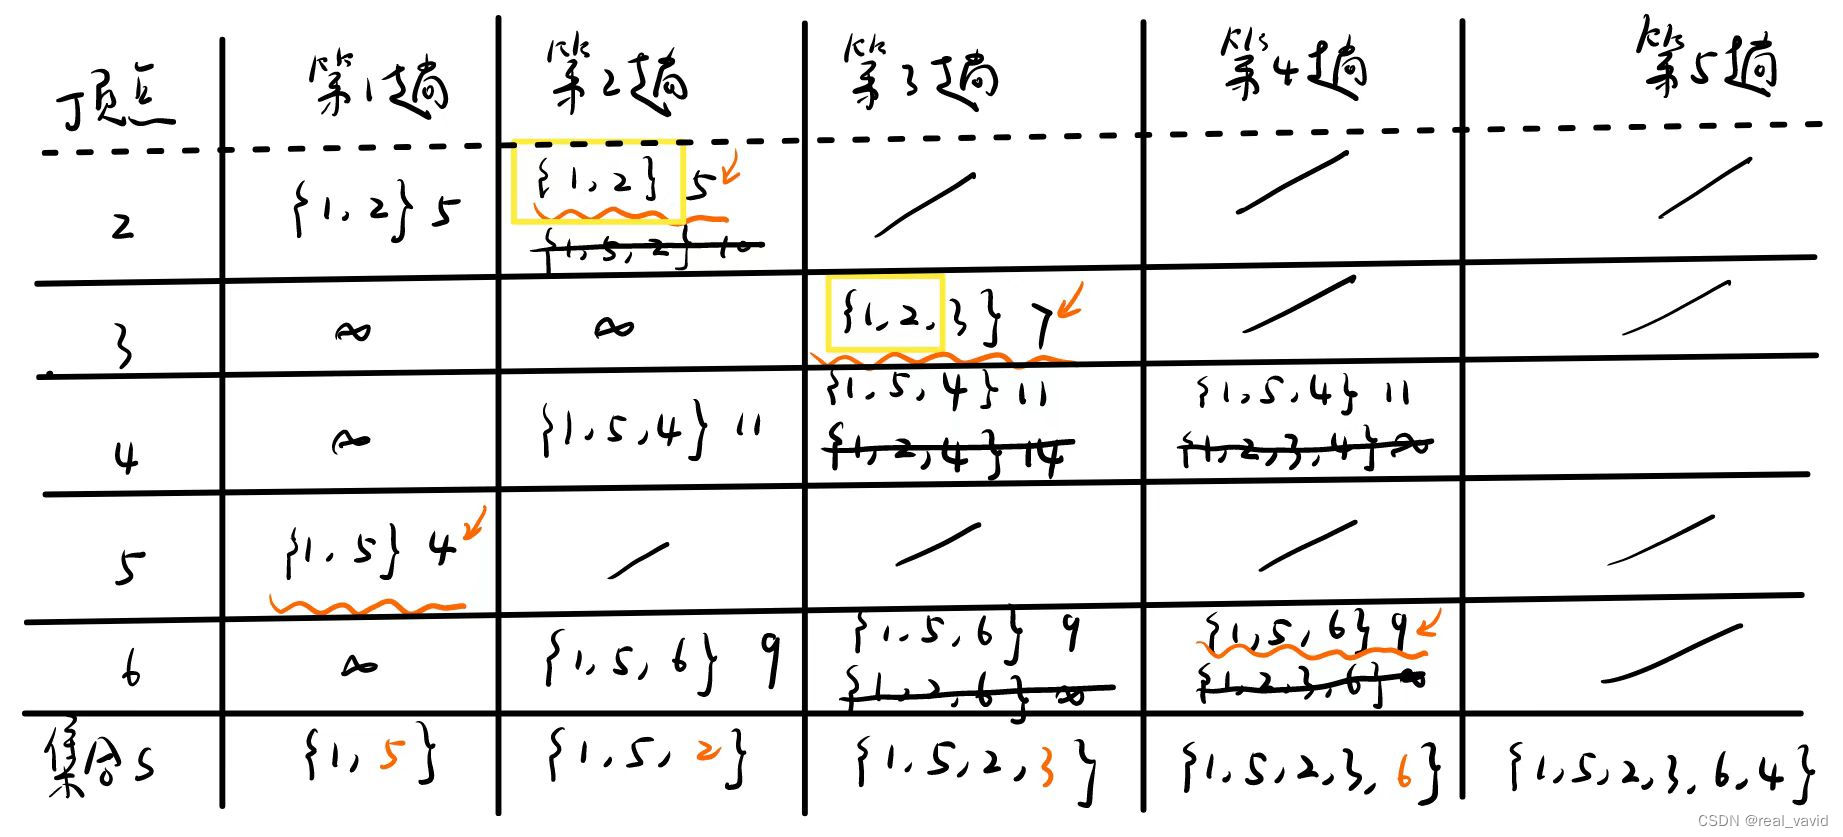 顶点 第1趟 第2趟 第3趟 第4趟 第5趟
2 {1,2} 5 {1,2} 5
{1,5,2} 10
3 ∞ ∞ {1,2,3} 7
4 ∞ {1,5,4} 11 {1,5,4} 11 {1,5,4} 11
{1,2,4} 14 {1,2,3,4} ∞
5 {1,5} 4
6 ∞ {1,5,6} 9 {1,5,6} 9 {1,5,6} 9
{1,2,6} ∞ {1,2,3,6} ∞
集合S {1,5} {1,5,2} {1,5,2,3} {1,5,2,3,6} {1,5,2,3,6,4}
CSDN @real_vavid